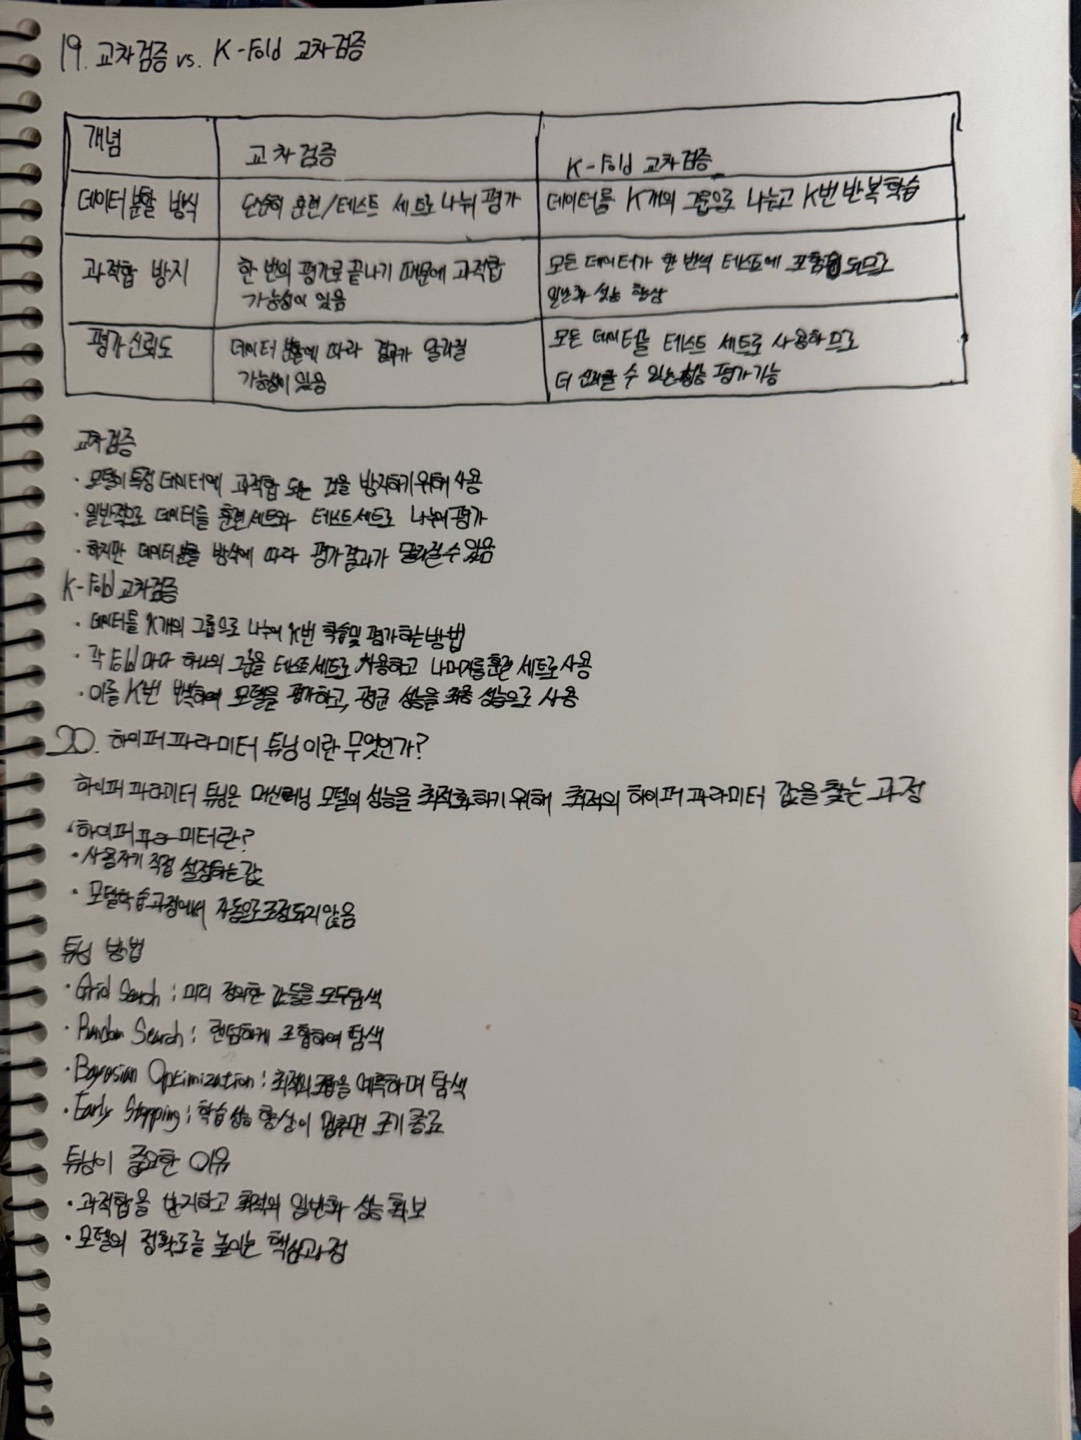 19. 교차검증 vs. K-Fold 교차검증
개념 교차검증 K-Fold 교차검증
데이터 분할 방식 단순히 훈련/테스트 세트로 나눠 평가 데이터를 K개의 그룹으로 나눈고 K번 반복 학습
과적합 방지 한 번의 평가로 끝나기 때문에 과적합 가능성이 있음 모든 데이터가 한 번씩 테스트에 포함 되므로 일반화 성능 향상
평가 신뢰도 데이터 분할에 따라 결과가 달라질 가능성이 있음 모든 데이터를 테스트 세트로 사용하므로 더 신뢰할 수 있는 성능 평가 가능
교차검증
· 모델이 특정 데이터에 과적합 되는 것을 방지하기 위해 사용
· 일반적으로 데이터를 훈련세트와 테스트세트로 나누어 평가
· 하지만 데이터 분할 방식에 따라 평가 결과가 달라질 수 있음
K-Fold 교차검증
· 데이터를 K개의 그룹으로 나누어 K번 학습 및 평가하는 방법
· 각 Fold 마다 하나의 그룹을 테스트세트로 사용하고 나머지를 훈련 세트로 사용
· 이를 K번 반복하여 모델을 평가하고, 평균 성능을 최종 성능으로 사용
20. 하이퍼파라미터 튜닝이란 무엇인가?
하이퍼 파라미터 튜닝은 머신러닝 모델의 성능을 최적화하기 위해 최적의 하이퍼 파라미터 값을 찾는 과정
· 하이퍼 파라미터란?
· 사용자가 직접 설정하는 값
· 모델학습 과정에서 자동으로 조정되지 않음
튜닝 방법
· Grid Search : 미리 정의한 값들을 모두 탐색
· Random Search : 랜덤하게 조합하여 탐색
· Bayesian Optimization : 최적의 조합을 예측하며 탐색
· Early Stopping : 학습 성능 향상이 멈추면 조기 종료
튜닝이 중요한 이유
· 과적합을 방지하고 최적의 일반화 성능 확보
· 모델의 정확도를 높이는 핵심과정